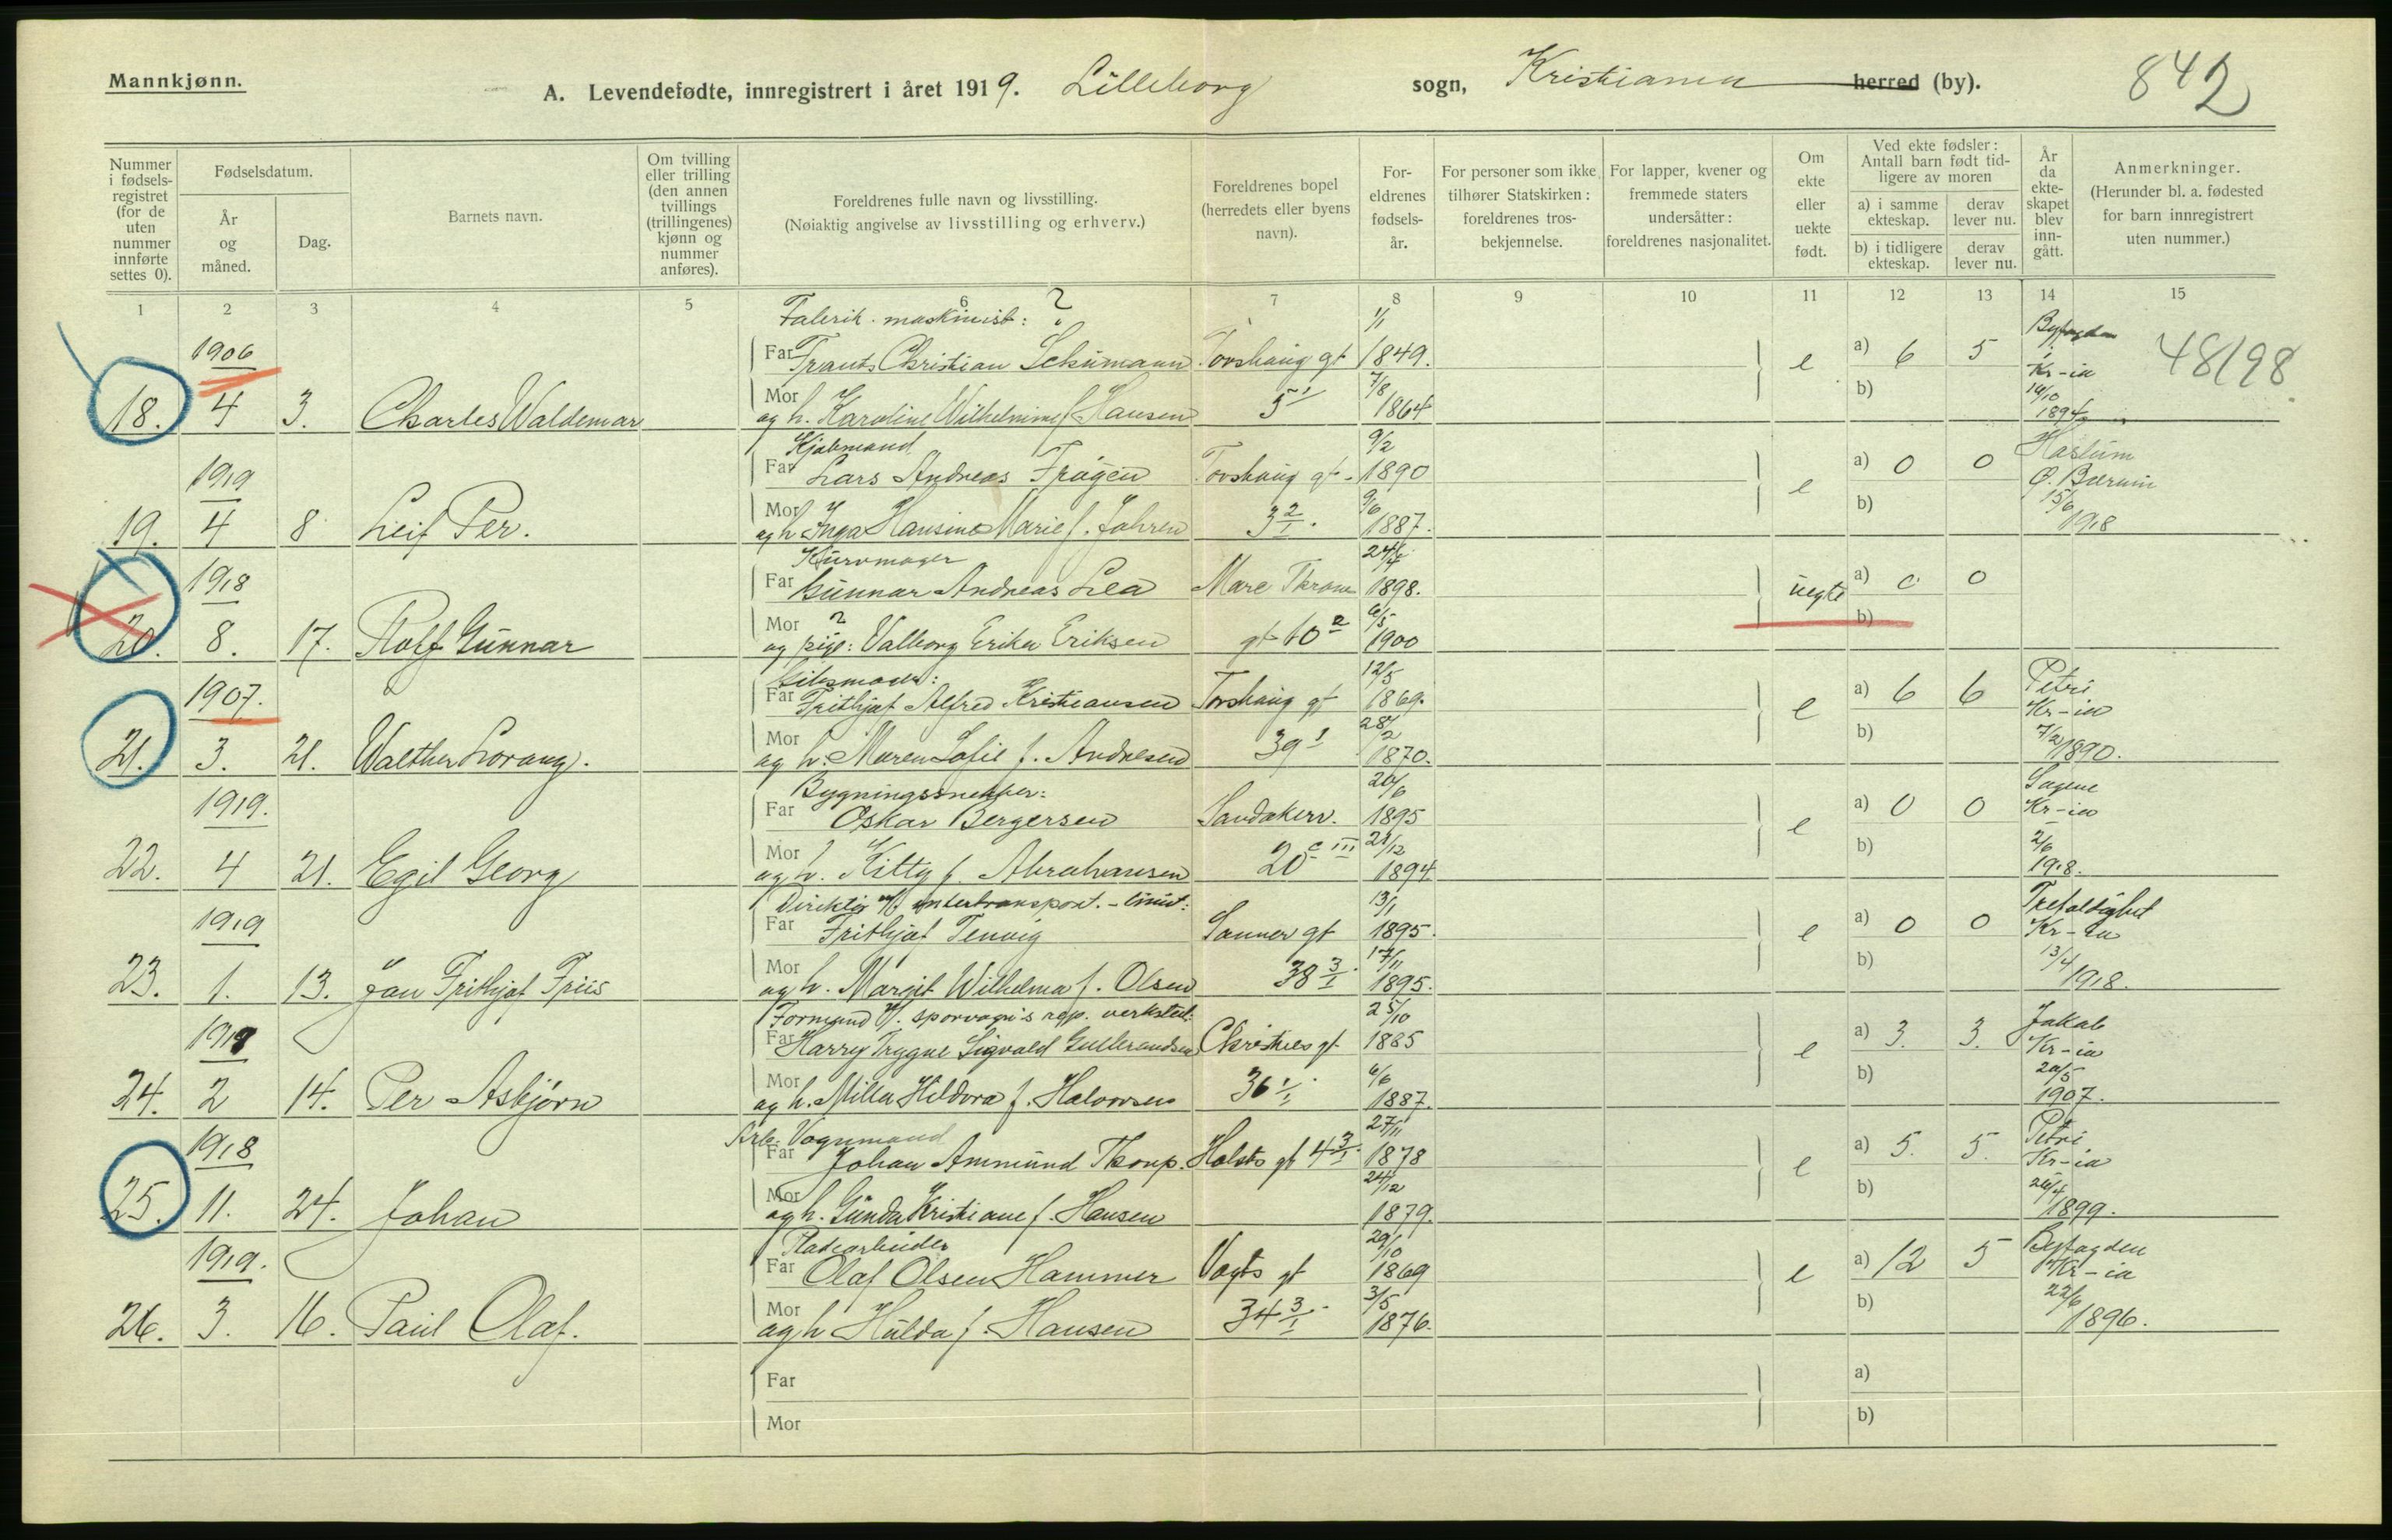 Mannkjønn.
A. Levendefødte, innregistrert i året 1919. Lilleborg sogn, Kristiania herred (by). 842
Nummer i fødselsregistret (for de uten nummer innførte settes 0).
Fødselsdatum.
År og måned.
Dag.
Barnets navn.
Om tvilling eller trilling (den annen tvillings (trillingenes) kjønn og nummer anføres).
Foreldrenes fulle navn og livsstilling.
(Nøiaktig angivelse av livsstilling og erhverv.)
Foreldrenes bopel (herredets eller byens navn).
Foreldrenes fødselsår.
For personer som ikke tilhører Statskirken: foreldrenes trosbekjennelse.
For lapper, kvener og fremmede staters undersåtter: foreldrenes nasjonalitet.
Om ekte eller uekte født.
Ved ekte fødsler: Antall barn født tidligere av moren
a) i samme ekteskap.
derav lever nu.
b) i tidligere ekteskap.
derav lever nu.
År da ekteskapet blev inngått.
Anmerkninger.
(Herunder bl. a. fødested for barn innregistrert uten nummer.)
1 2 3 4 5 6 7 8 9 10 11 12 13 14 15
Fabrik. maskinist: ? 1/1
1906 Far Frants Christian Schumann Torshaug gt 1849. e a) 6 5 Byfogden Kr-ia 48198
18. 4 3. Charles Waldemar Mor og h. Karoline Wilhelmine f. Hansen 5 I 7/8 1864 b) 14/10 1894
Kjøbmand 9/2
1919 Far Lars Andreas Frøgen Torshaug gt. 1890 e a) 0 0 Haslum Ø. Bærum
19. 4 8 Leif Per. Mor og h Inga Hansine Marie f. Johren 3 2/I. 9/6 1887. b) 15/6 1918
Kurvmager 24/4
1918 Far Gunnar Andreas Lea Mare Thrones 1898. uegte a) 0 0
20. 8. 17. Rolf Gunnar Mor og pige: Valborg Erika Eriksen gt 10 2 6/5 1900 b)
12/5
1907. Far Frithjof Alfred Kristiansen Torshaug gt 1869. e a) 6 6 Petri Kr-ia
21. 3. 21. Walther Lorang. Mor og h. Maren Sofie f. Andresen 39 I 28/2 1870. b) 7/2 1890.
Bygningssnekker: 20/6
1919. Far Oskar Bergersen Sandakerv. 1895 e a) 0 0 Sagene Kr-ia
22. 4 21. Egil Georg Mor og h. Kitty f Abrahamsen 20 c III 21/12 1894 b) 2/6 1918.
Direktør 13/1
1919 Far Frithjof Tenvig Sanner gt 1895. e a) 0 0 Trefoldighet Kr-ia
23. 1. 13. Jan Frithjof Friis Mor og h. Margit Wilhelma f. Olsen 38 3/I. 17/11 1895. b) 13/4 1918.
Formand v/. sporvogn's rep. verksted: 25/10
1919 Far Harry Trygve Sigvald Gulbrandsen Christies gt 1885 e a) 3. 3. Jakob Kr-ia
24. 2 14. Per Asbjørn Mor og h. Milla Hildora f. Halvorsen 36 I/I. 6/6 1887. b) 20/5 1907.
Arb: Vognmand 27/11
1918 Far Johan Ammund Thorp. Holsts gt 4 3/I. 1878 e a) 5. 5. Petri Kr-ia
25. 11. 24. Johan Mor og h. Gunda Kristiane f. Hansen 24/12 1879. b) 1899.
Pladsarbeider 29/10
1919. Far Olaf Olsen Hammer Vogts gt 1869 e a) 12 5 Byfogden Kr-ia
26. 3. 16. Paul Olaf. Mor og h Hulda f. Hansen 34 3/I. 3/5 1876. b) 22/6 1896.
Far a)
Mor b)